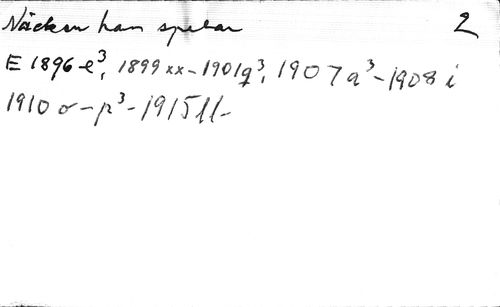 Näcken han spelar 2
E 1896 e³, 1899 xx - 1901 q³, 1907 a³ - 1908 i
1910 o - p³ - 1915 ll -